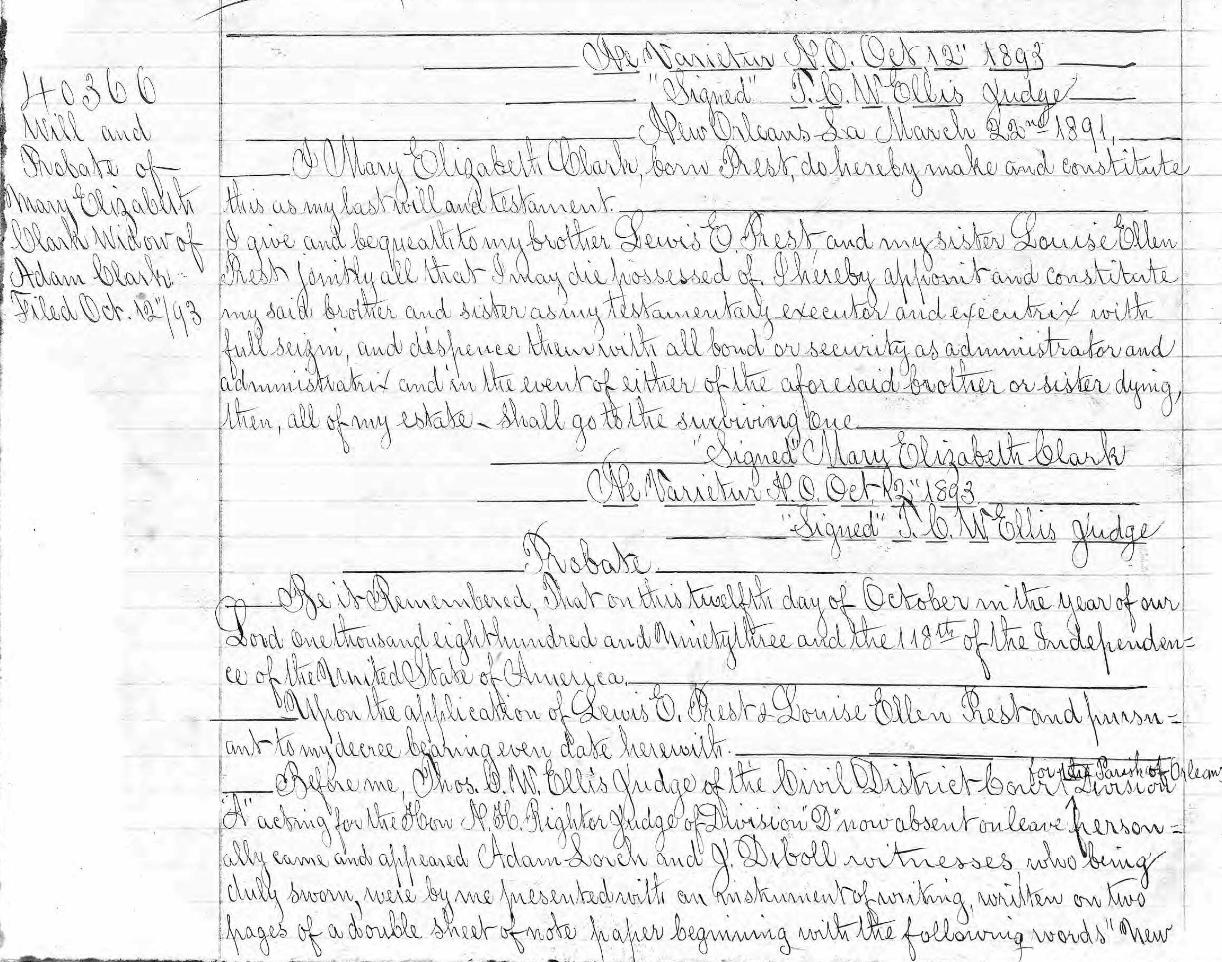 40366
Will and
Probate of
Mary Elizabeth
Clark Widow of
Adam Clark
Filed Oct. 12"/93
Ne Varietur N.O. Oct 12" 1893
"Signed" T. C. W Ellis Judge
New Orleans La March 22nd 1891,
I Mary Elizabeth Clark, born Prest, do hereby make and constitute
this as my last will and testament.
I give and bequeath to my brother Lewis E. Prest and my sister Louise Ellen
Prest jointly all that I may die possessed of. I hereby appoint and constitute
my said brother and sister as my testamentary executor and executrix with
full seizin, and dispence them with all bond or security as administrator and
administratrix and in the event of either of the aforesaid brother or sister dying,
then, all of my estate - shall go to the surviving one
"Signed" Mary Elizabeth Clark
Ne Varietur N.O. Oct 12" 1893.
"Signed" T. C. W Ellis Judge
Probate
Be it Remembered, That on this twelfth day of October in the year of our
Lord one thousand eight hundred and Ninety three and the 118th of the Independen=
ce of the United State of America.
Upon the application of Lewis E. Prest & Louise Ellen Prest and pursu=
ant to my decree bearing even date herewith.
Before me, Thos. C. W. Ellis Judge of the Civil District Court for the Parish of Orleans Division
"A" acting for the Hon N. H. Rightor Judge of Division "D" now absent on leave person=
ally came and appeared Adam Lorch and J. Diboll witnesses, who being
duly sworn, were by me presented with an instrument of writing, written on two
pages of a double sheet of note paper beginning with the following words "New